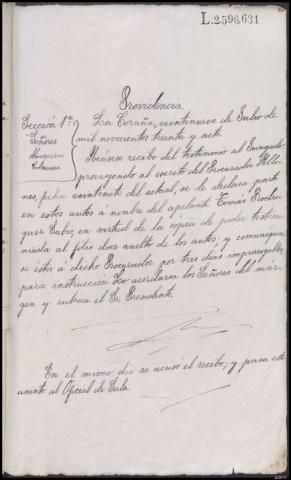 L.2.596.631
Providencia.
Sección 1ª
Señores
La Coruña, veintinueve de Julio de
mil novecientos treinta y siete
Acúsese recibo del testimonio al Juzgado:
proveyendo al escrito del Procurador
nes, fecha veintisiete del actual, se le declara parte
en estos autos á nombre del apelante Tomás Rodrí-
guez Sabio, en virtud de la copia de poder testimo-
niada al folio doce vuelto de los autos; y comuníquen
se estos á dicho Procurador por tres dias improrrogables,
para instruccion. Lo acordaron los Señores del már-
gen y rubrica el Sr. Presidente.
En el mismo dia se acusó el recibo; y pasa este
asunto al Oficial de Sala.